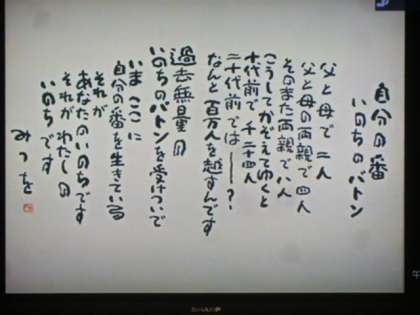 自分の番
いのちのバトン
父と母で二人
父と母の両親で四人
そのまた両親で八人
こうしてかぞえてゆくと
十代前で千二十四人
二十代前では―?
なんと百万人を越すんです
過去無量の
いのちのバトンを受けついで
いまここに
自分の番を生きている
それが
あなたのいのちです
それがわたしの
いのちです
みつを
SHARP
午